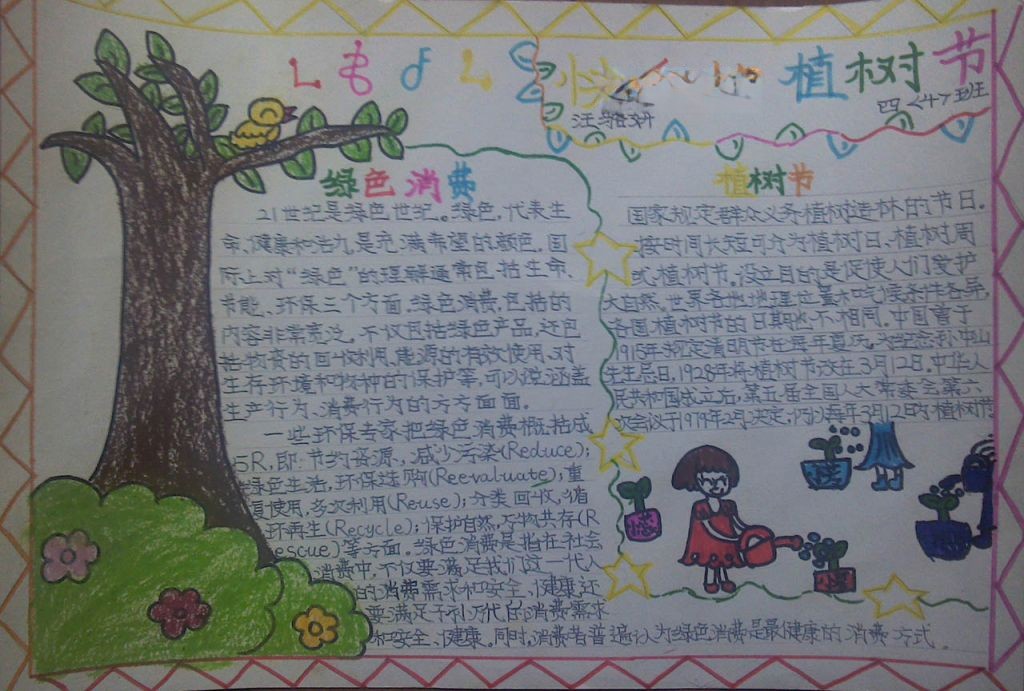 植树节
汪雅妍
四〈4〉班
绿色消费
21世纪是绿色世纪。绿色,代表生
命、健康和活力,是充满希望的颜色。国
际上对“绿色”的理解通常包括生命、
节能、环保三个方面。绿色消费,包括的
内容非常宽泛。不仅包括绿色产品,还包
括物资的回收利用,能源的有效使用、对
生存环境和物种的保护等,可以说涵盖
生产行为、消费行为的方方面面。
一些环保专家把绿色消费概括成
5R,即:节约资源,减少污染(Reduce);
绿色生活,环保选购(Reevaluate);重
复使用,多次利用(Reuse);分类回收,循
环再生(Recycle);保护自然,万物共存(R
escue)等方面。绿色消费是指在社会
消费中,不仅要满足我们这一代人
的消费需求和安全、健康,还
要满足子孙万代的消费需求
和安全、健康。同时,消费者普遍认为绿色消费是最健康的消费方式。
植树节
国家规定群众义务植树造林的节日。
按时间长短可分为植树日、植树周
或植树节。设立目的是促使人们爱护
大自然。世界各地地理位置和气候条件各异,
各国植树节的日期也不相同。中国曾于
1915年规定清明节
先生忌日,1928年将植树节改在3月12日。中华人
民共和国成立后,第五届全国人大常委会第六
次会议于1979年2月决定,仍以每年3月12日为植树节